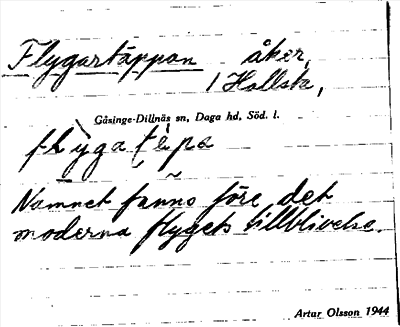 Flygartäppan åker,
i Hallsta,
Gåsinge-Dillnäs sn, Daga hd, Söd. l.
Namnet fanns före det
moderna flygets tillblivelse.
Artur Olsson 1944